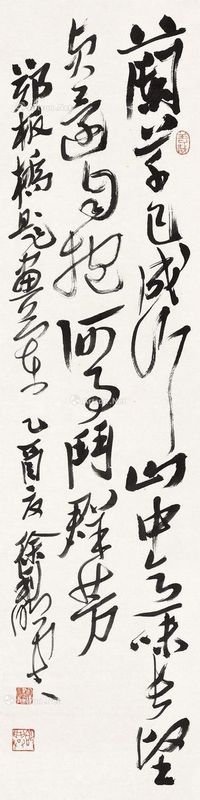 蘭草已成行山中意味長堅
貞還自抱何事鬥群芳
鄭板橋題畫蘭 乙酉夏徐利明